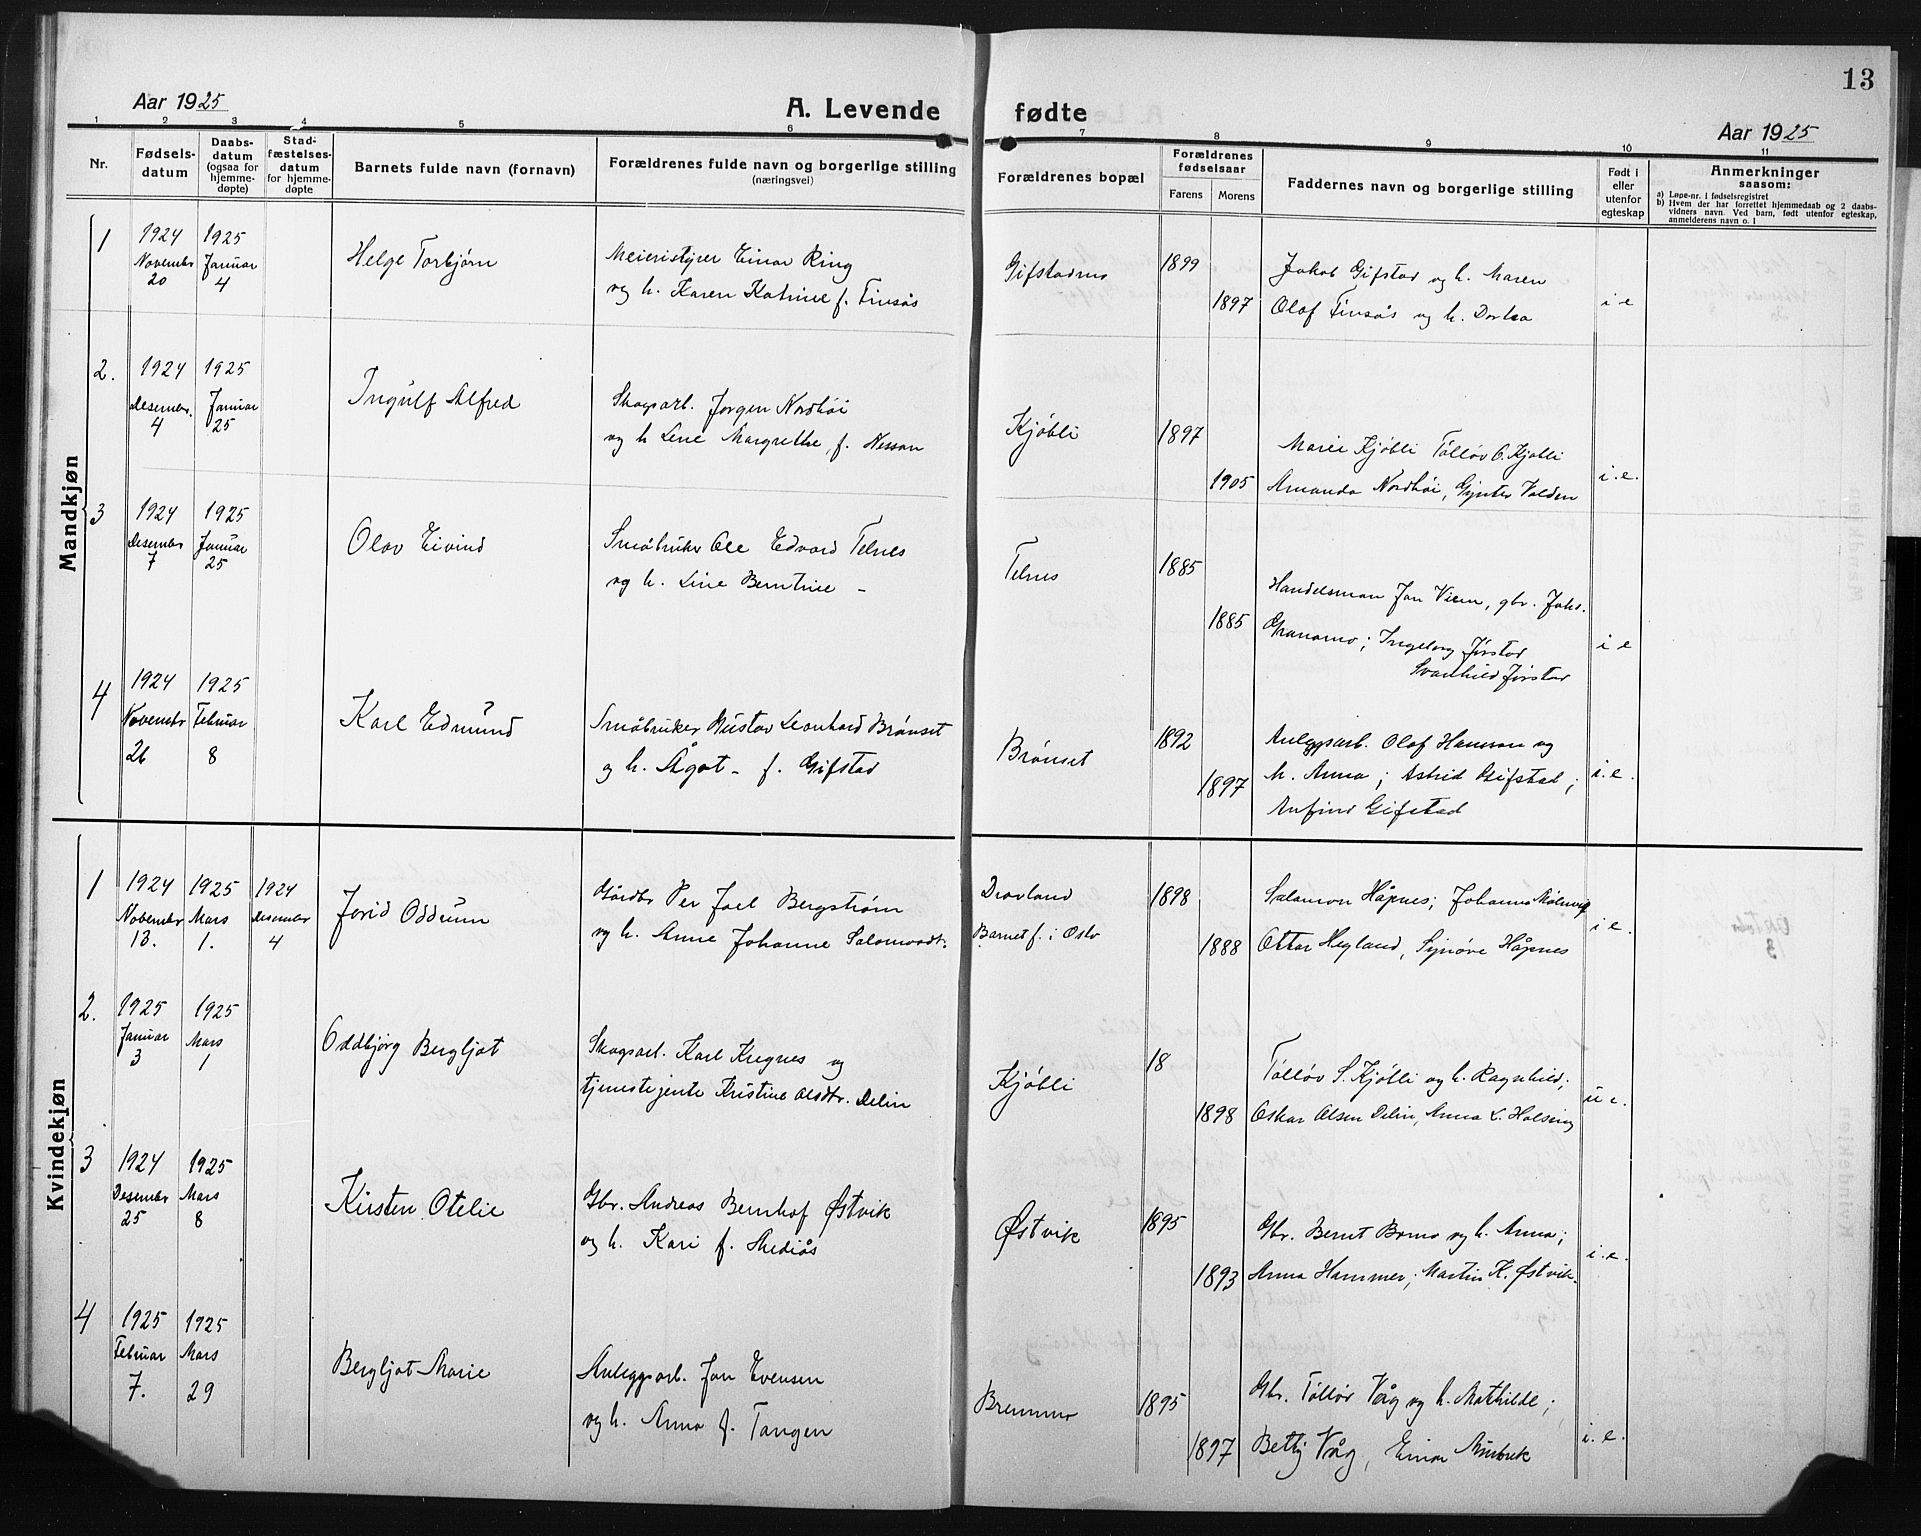 13
Aar 1925
A. Levende fødte
Aar 1925
1 2 3 4 5 6 7 8 9 10 11
Nr.
Fødsels-
datum
Daabs-
datum
(ogsaa for
hjemme-
døpte)
Stad-
fæstelses-
datum
for hjemme-
døpte
Barnets fulde navn (fornavn)
Forældrenes fulde navn og borgerlige stilling
(næringsvei)
Forældrenes bopæl
Forældrenes
fødselsaar
Farens Morens
Faddernes navn og borgerlige stilling
Født i
eller
utenfor
egteskap
Anmerkninger
saasom:
a) Løpe-nr. i fødselsregistret
b) Hvem der har forrettet hjemmedaab og 2 daabs-
vidners navn. Ved barn, født utenfor egteskap,
anmelderens navn o. l
Mandkjøn
1
1924
Novembr
20
1925
Januar
4
Helge Torbjørn
Meieristyrer Einar Ring
og h. Karen Katrine f. Finsås
Gifstadmo
1899
1897
Jakob Gifstad og h. Maren
Olaf Finsås og h. Dortea
i e
2.
1924
Desembr.
4
1925
Januar
25
Ingulf Alfred
Skogsarb. Jørgen Nordhöi
og h Line Margrethe, f. Nessan
Kjøbli
1897
1905
Marie Kjøbli Tölløv O. Kjøbli
Amanda Nordhöi, Gÿnter Valden
i. e.
3
1924
Desembr
7
1925
Januar
25
Olav Eivind
Småbruker Ole Edvard Telnes
og h. Line Berntine –
Telnes
1885
1885
Handelsman Jon Viem, gbr. Johs.
Granamo; Ingeborg Jørstad
Svanhild Jørstad
i e
4
1924
Novembr
26
1925
Februar
8
Karl Edmund
Småbruker Gustav Leonhard Brønset
og h. Ågot – f. Gifstad
Brønset
1892
1897
Anleggsarb. Olaf Hanssen og
h. Anna; Astrid Gifstad;
Arnfinn Gifstad
i. e.
Kvindekjøn
1
1924
Novembr
13.
1925
Mars
1.
1924
Desembr
4
Jorid Oddrun
Gårdbr Per Joel Bergstrøm
og h. Anne Johanne Salomondt.
Dravland
Barnet f. i Oslo
1898
1888
Salamon Håpnes; Johanna Molnvig
Ottar Hegland, Synøve Håpnes
i e.
2.
1925
Januar
3
1925
Mars
1
Oddbjørg Bergljot
Skogsarb. Karl Kregnes og
tjenestejente Kristine Olsdtr. Delin
Kjøbli
18
1898
Tölløv S. Kjøbli og h. Ragnhild;
Oskar Olsen Delin, Anna L. Holsing
u e.
3
1924
Desembr
25
1925
Mars
8
Kirsten Otelie
Gbr. Andreas Bernhof Østvik
og h. Kari f. Medjås
Østvik
1895
1893
Gbr. Bernt Bomo og h. Anna;
Anna Hammer; Martin K. Østvik.
i. e.
4
1925
Februar
7.
1925
Mars
29
Bergljot Marie
Anleggsarb. Jon Evensen
og h. Anna f. Tangen
Bremmo
1895
1897
Gbr. Tölløv Våg og h. Mathilde;
Betty Våg, Einar
i. e.